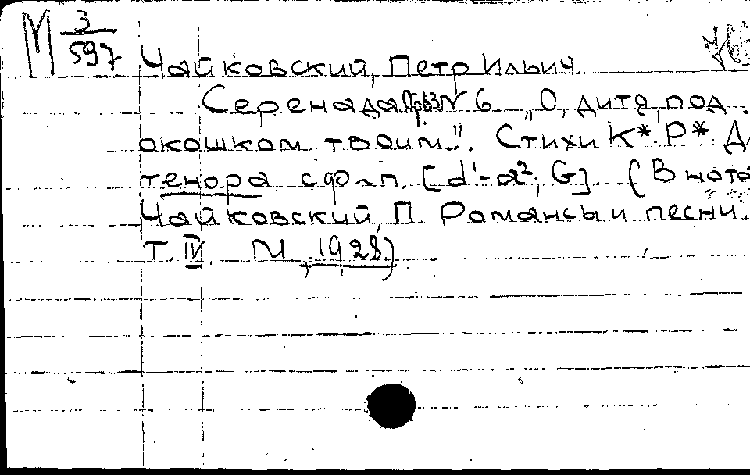 М 3/597
Чайковский, Петр Ильич
Серенада Ор.63 N 6 „О, дитя, под
окошком твоим". Стихи К*. Р*. Д
тенора с ф-п. [d¹-a²; G] (В нота
Чайковский, П. Романсы и песни.
Т. IV. М., 1928.)